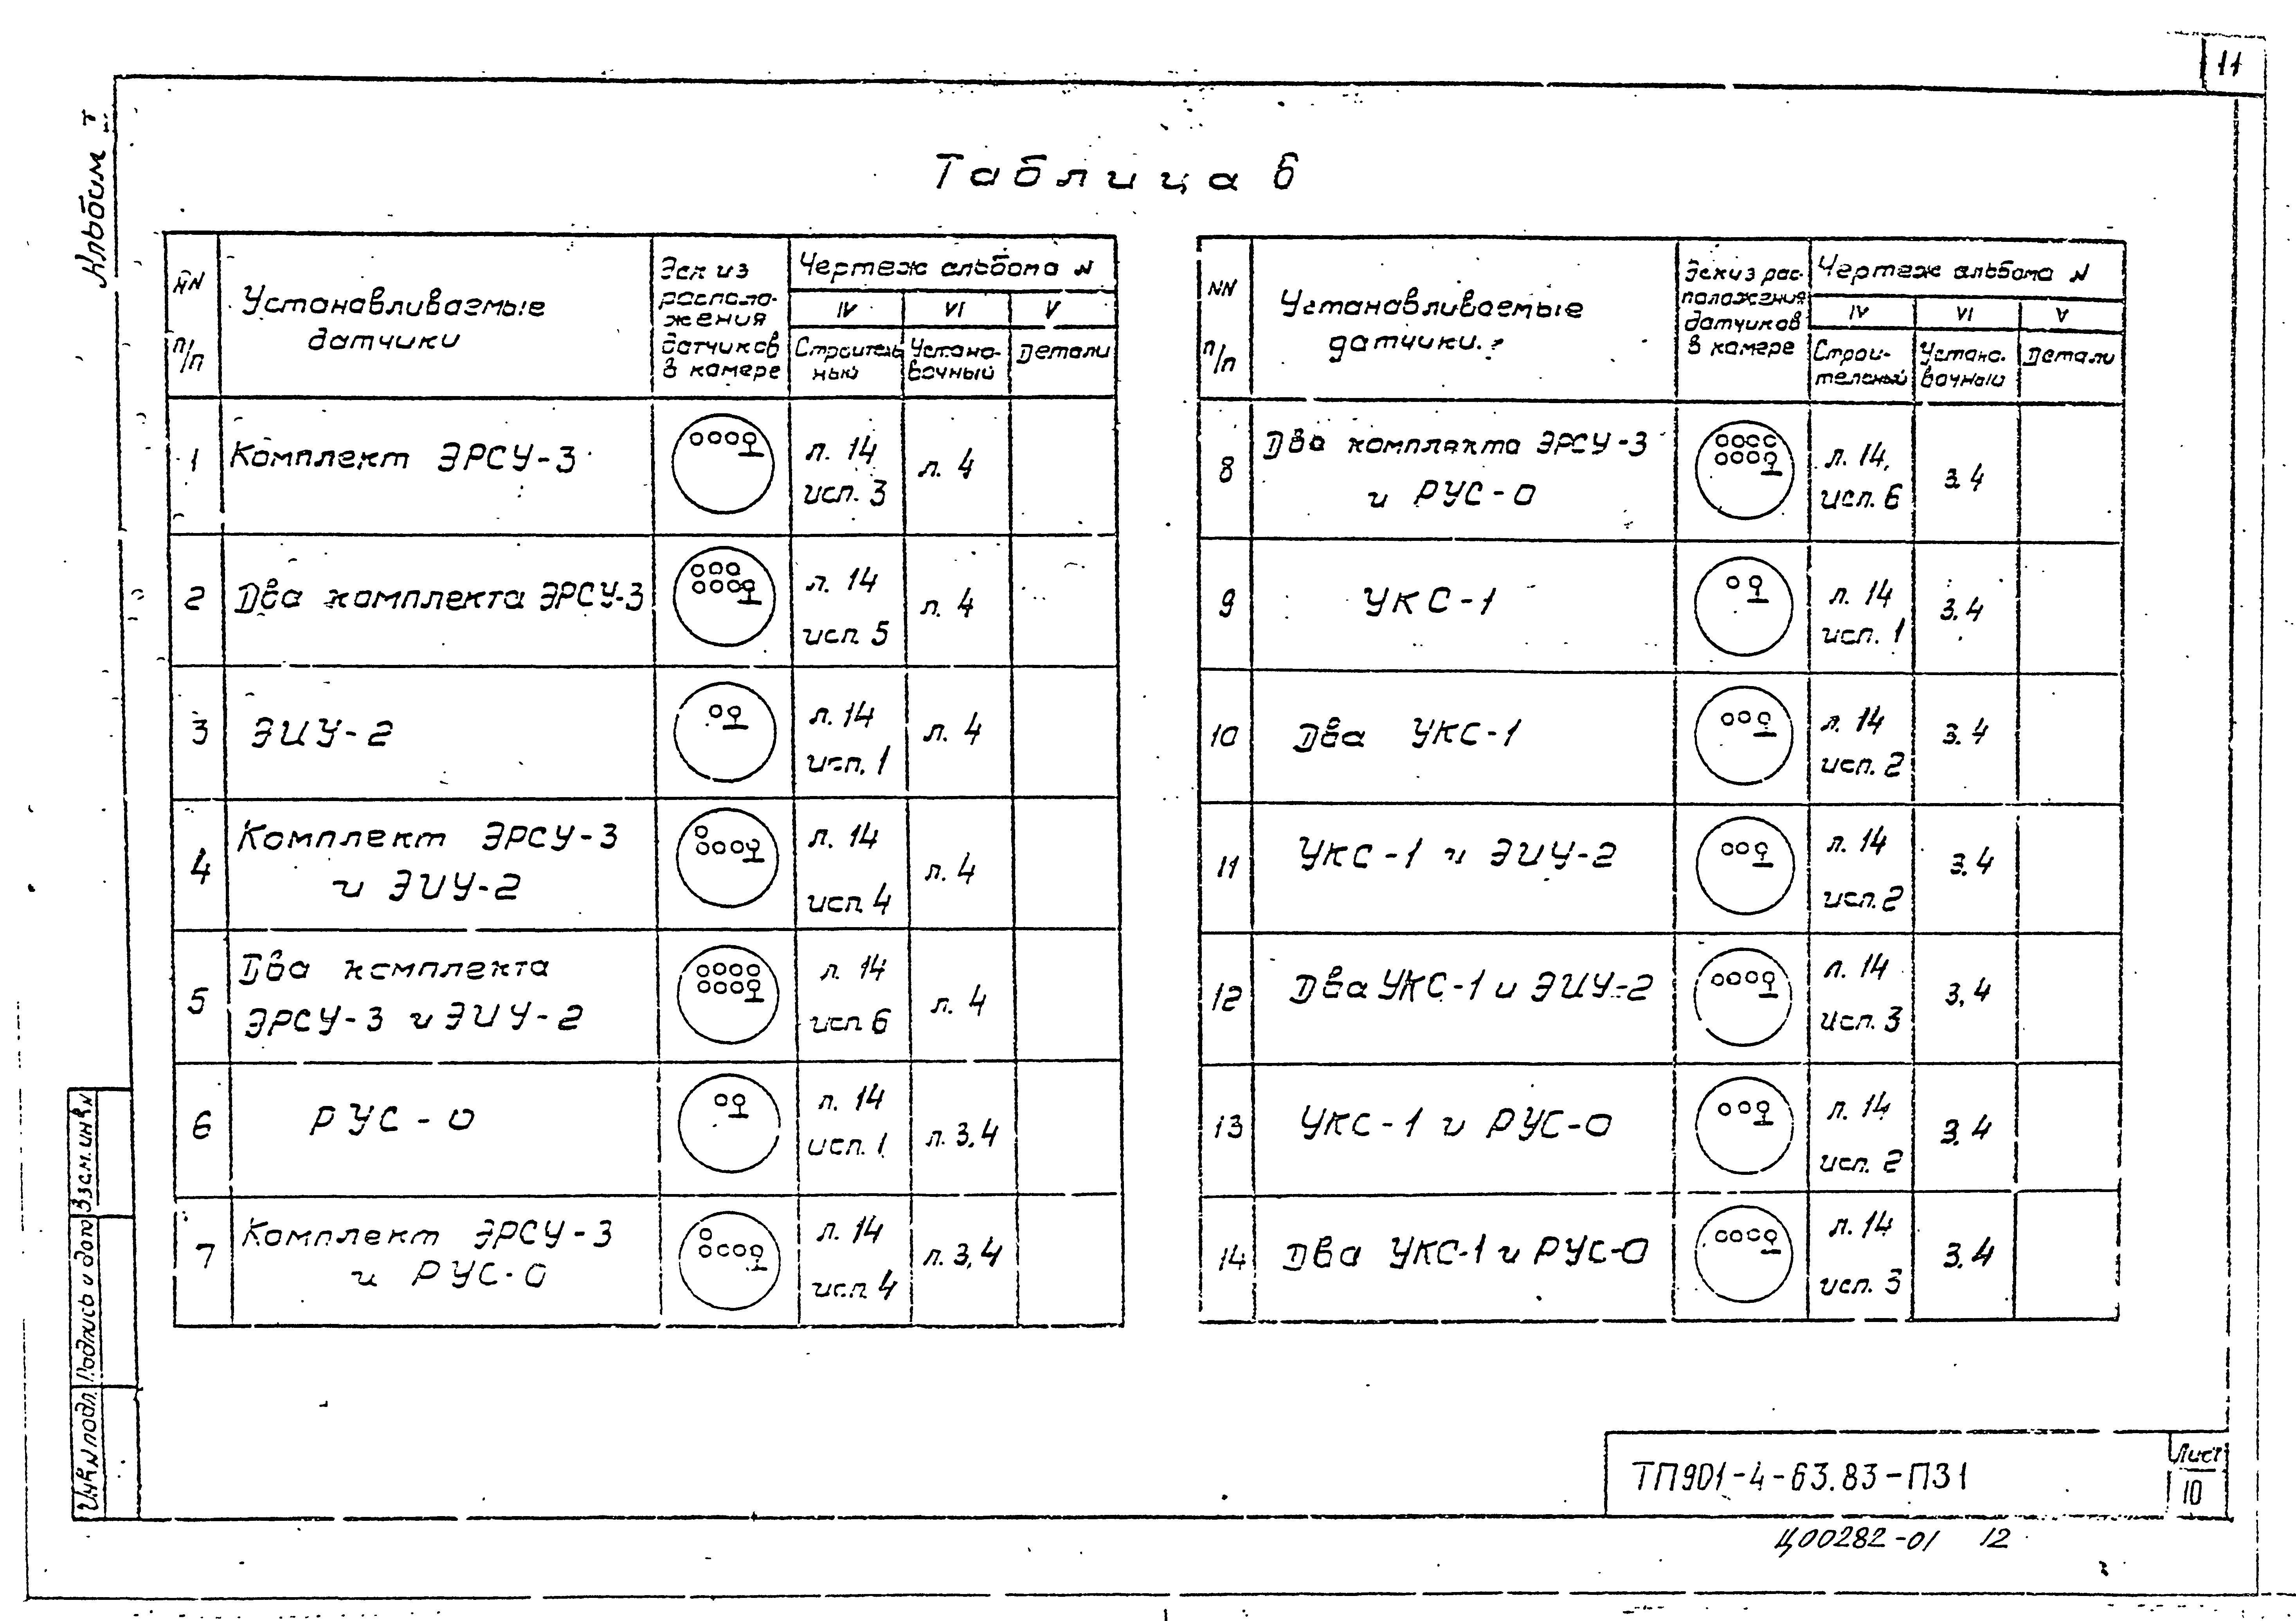 11
Альбом I
Таблица 6
NN п/п
Устанавливаемые датчики
Эскиз располо-
жения
датчиков
в камере
Чертеж альбома N
IV
VI
V
Строитель
ный
Устано-
вочный
Детали
1
Комплект ЭРСУ-3
л. 14
исп. 3
л. 4
2
Два комплекта ЭРСУ-3
л. 14
исп 5
л. 4
3
ЭИУ-2
л. 14
исп. 1
л. 4
4
Комплект ЭРСУ-3
и ЭИУ-2
л. 14
исп 4
л. 4
5
Два комплекта
ЭРСУ-3 и ЭИУ-2
л. 14
исп 6
л. 4
6
РУС-0
л. 14
исп. 1
л. 3,4
7
Комплект ЭРСУ-3
и РУС-0
л. 14
исп. 4
л. 3,4
NN п/п
Устанавливаемые
датчики.
Эскиз рас-
положения
датчиков
в камере
Чертеж альбома N
IV
VI
V
Строи-
тельный
Устано-
вочный
Детали
8
Два комплекта ЭРСУ-3
и РУС-0
л. 14,
исп. 6
3.4
9
УКС-1
л. 14
исп. 1
3.4
10
Два УКС-1
л. 14
исп. 2
3.4
11
УКС-1 и ЭИУ-2
л. 14
исп. 2
3.4
12
Два УКС-1 и ЭИУ-2
л. 14
исп. 3
3,4
13
УКС-1 и РУС-0
л. 14
исп. 2
3.4
14
Два УКС-1 и РУС-0
л. 14
исп. 3
3.4
Взам.инв N
Подпись и дата
Инв N подл.
ТП901-4-63.83-ПЗ1
Лист
10
Ц00282-01 12